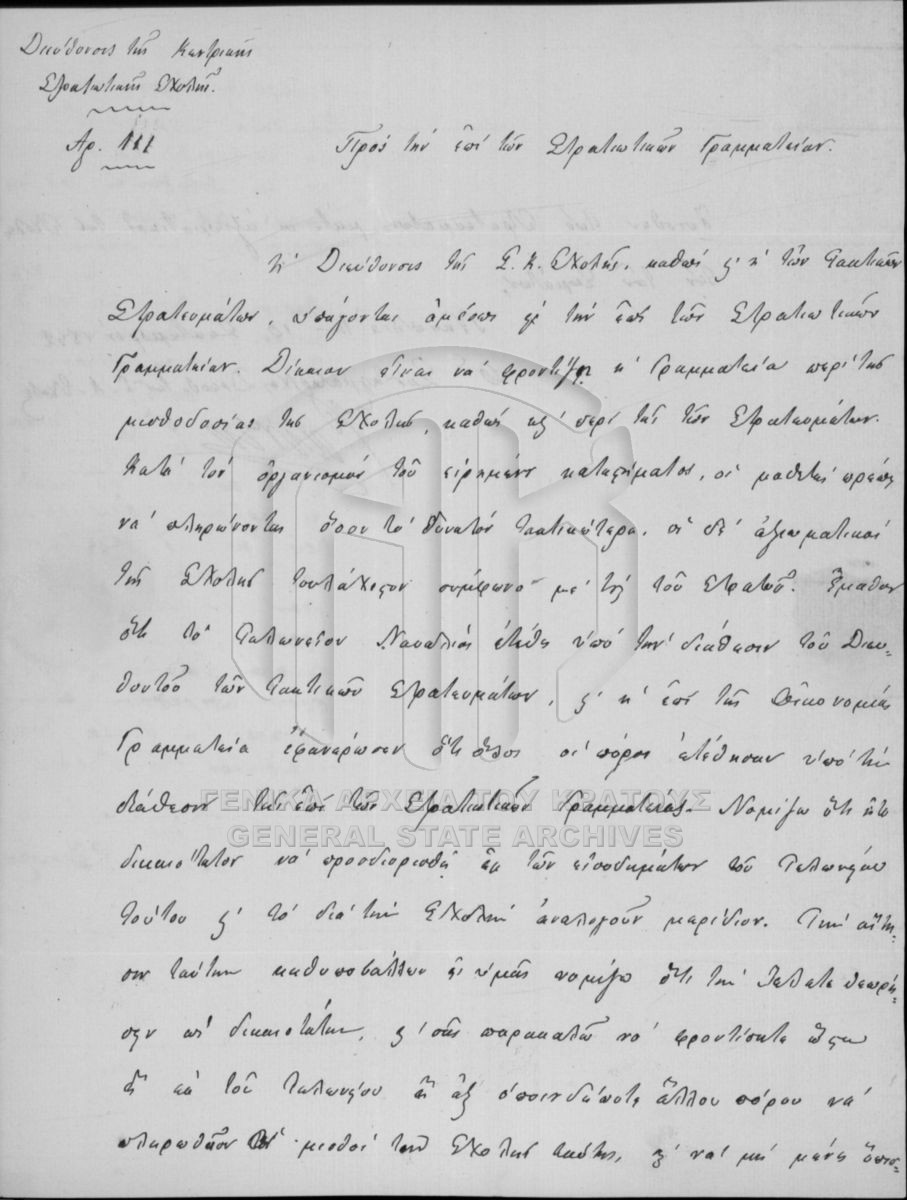 Διεύθυνσις τῆς Κεντρικῆς
Στρατιωτικῆς Σχολῆς.
Αρ. 111
Πρός τήν ἐπί τῶν Στρατιωτικῶν Γραμματείαν.
Ἡ Διεύθυνσις τῆς Σ. Κ. Σχολῆς, καθώς κ' ἡ τῶν Τακτικῶν
Στρατευμάτων, ὑπάγονται ἀμέσως εἰς τήν ἐπί τῶν Στρατιωτικῶν
Γραμματείαν. Δίκαιον εἶναι νά φροντίζῃ ἡ Γραμματεία περί τῆς
μισθοδοσίας τῆς Σχολῆς, καθώς καί περί τῆς τῶν Στρατευμάτων.
Κατά τόν ὀργανισμόν τοῦ εἰρημένου καταστήματος, οἱ μαθηταί πρέπει
νά πληρώνονται ὅσον τό δυνατόν τακτικώτερα, οἱ δέ ἀξιωματικοί
τῆς Σχολῆς τουλάχιστον συμφώνως μέ τούς τοῦ Στρατοῦ. Ἔμαθον
ὅτι τό Τελωνεῖον Ναυπλίας ἐτέθη ὑπό τήν διάθεσιν τοῦ Διευ-
θυντοῦ τῶν Τακτικῶν Στρατευμάτων, κ' ἡ ἐπί τῆς Οἰκονομίας
Γραμματεία ἐφανέρωσεν ὅτι ὅλοι οἱ πόροι ἐτέθησαν ὑπό τήν
διάθεσιν τῆς ἐπί τῶν Στρατιωτικῶν Γραμματείας. Νομίζω ὅτι ἦτο
δικαιότατον νά προσδιορισθῇ ἐκ τῶν εἰσοδημάτων τοῦ Τελωνείου
τούτου κ' τό διά τήν Σχολήν ἀναλογοῦν μερίδιον. Τήν αἴτη-
σιν ταύτην καθυποβάλλων εἰς ὑμᾶς νομίζω ὅτι τήν θέλετε θεωρή-
σειν ὡς δικαιοτάτην, κ' σᾶς παρακαλῶ νά φροντίσητε ὥστε
ἤ ἐκ τοῦ Τελωνείου ἤ ἐξ ὁποιουδήποτε ἄλλου πόρου νά
πληρωθῶσιν οἱ μισθοί τῆς Σχολῆς ταύτης, κ' νά μή μένῃ ὀπισ-
ΓΕΝΙΚΑ ΑΡΧΕΙΑ ΤΟΥ ΚΡΑΤΟΥΣ
GENERAL STATE ARCHIVES